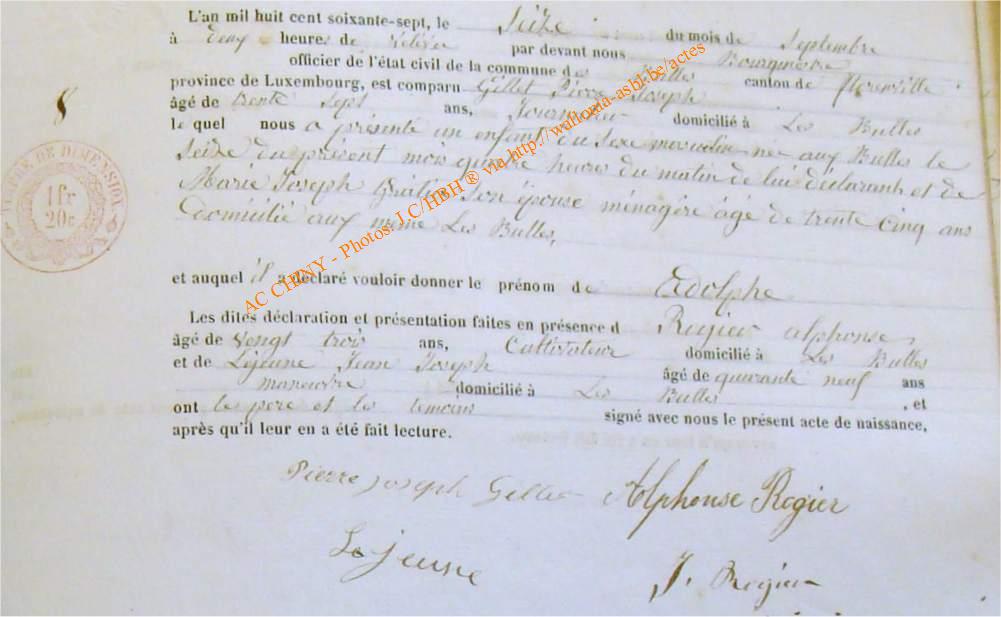 L'an mil huit cent soixante-sept, le Seize du mois de Septembre
à deux heures de relevée par devant nous Bourgmestre
officier de l'état civil de la commune des Bulles canton de florenville
province de Luxembourg, est comparu Gillet Pierre Joseph
âgé de trente sept ans, domicilié à Les Bulles
le quel nous a présenté un enfant du Sexe masculin né aux Bulles le
Seize du présent mois quatre heures du matin de lui déclarant et de
Marie Joseph Son épouse ménagère âgé de trente cinq ans
Domicilié aux meme Les Bulles,
et auquel il a déclaré vouloir donner le prénom de Adolphe
Les dites déclaration et présentation faites en présence d Rogier alphonse,
âgé de vengt trois ans, Cultivateur domicilié à Les Bulles
et de Lejeune Jean Joseph âgé de quarante neuf ans
manœuvre domicilié à Les Bulles , et
ont le pere et les temoins signé avec nous le présent acte de naissance,
après qu'il leur en a été fait lecture.
Pierre joseph Gillet Alphonse Rogier
Lejeune J. Rogier
8
TIMBRE DE DIMENSION
1fr
20c
AC CHINY - Photos: J.C/HBH ® via http://wallonia-asbl.be/actes